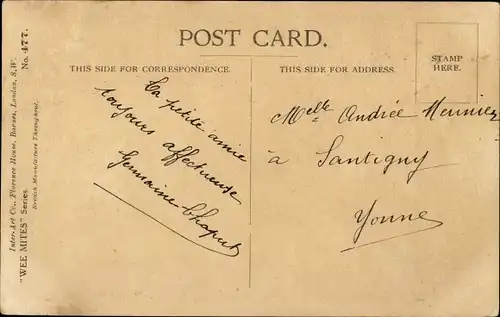 POST CARD.
THIS SIDE FOR CORRESPONDENCE.
THIS SIDE FOR ADDRESS.
STAMP
HERE.
Ta petite amie
toujours affectueuse
Germaine Chaput
Melle Andrée Meunier
à Santigny
Yonne
Inter-Art Co., Florence House, Barnes, London, S.W.
"WEE MITES" Series. No. 477.
British Manufacture Throughout.